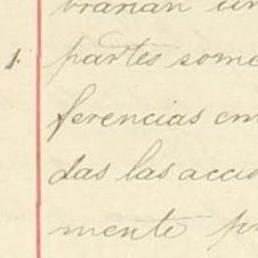 branan un
1. partes some
ferencias em
das las accio
mente pr